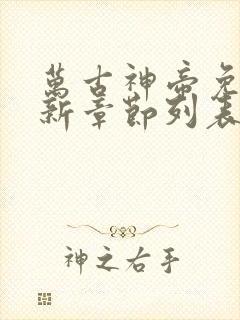 萬古神帝免
新章節列表
神之右手